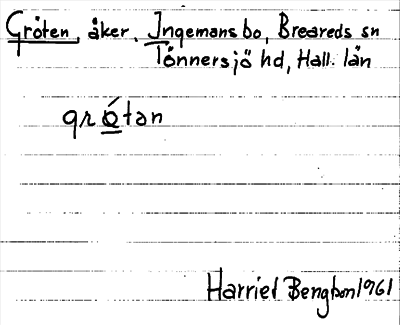 Gröten, åker. Ingemansbo, Breareds sn
Tönnersjö hd, Hall. län
grǿtan
Harriet Bengtson 1961